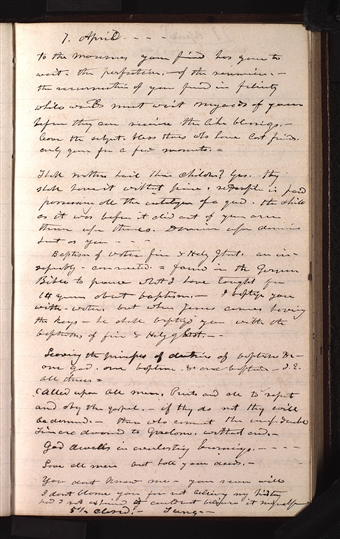 7. April - - - -
to the mourners your friend has gone to
wait. the perfection. of the reunion. -
the resurrection of your friend in felicity
while worlds must wait myriads of years
before they can receive the like blessings. -
leave the subject. bless those who have lost friends.
only gone for a few moments. =
Shall mothers have their Children? Yes. they
shall have it without price. redemption is paid
possessing all the intelligence of a god. the child
as it was before it died out of your arms
thrones upon thrones. dominion upon dominion
just as you - - -
Baptism of water fire & Holy Ghost. are in-
separably connected = found in the German
Bible to prove what I have taught for
14 years about baptism. - I baptize you
with water. but when Jesus comes having
the keys - he shall baptize you with the
baptism of fire & Holy Ghost. - -
Leaving the principles of doctrine of baptism &c -
one god. one baptism. & one baptism - I.E.
all three =
Called upon all men. Priests and all to repent
and obey the gospel. - if they do not they will
be damned. - those who commit the unpardonable
sin are doomed to Gnaolom. without end. -
God dwells in everlasting burnings. - - - -
Love all men but hate your deeds. -
You dont know me - you never will
I dont blame you for not believing my history
had I not experienced it could not believe it myself
5½ closed. -